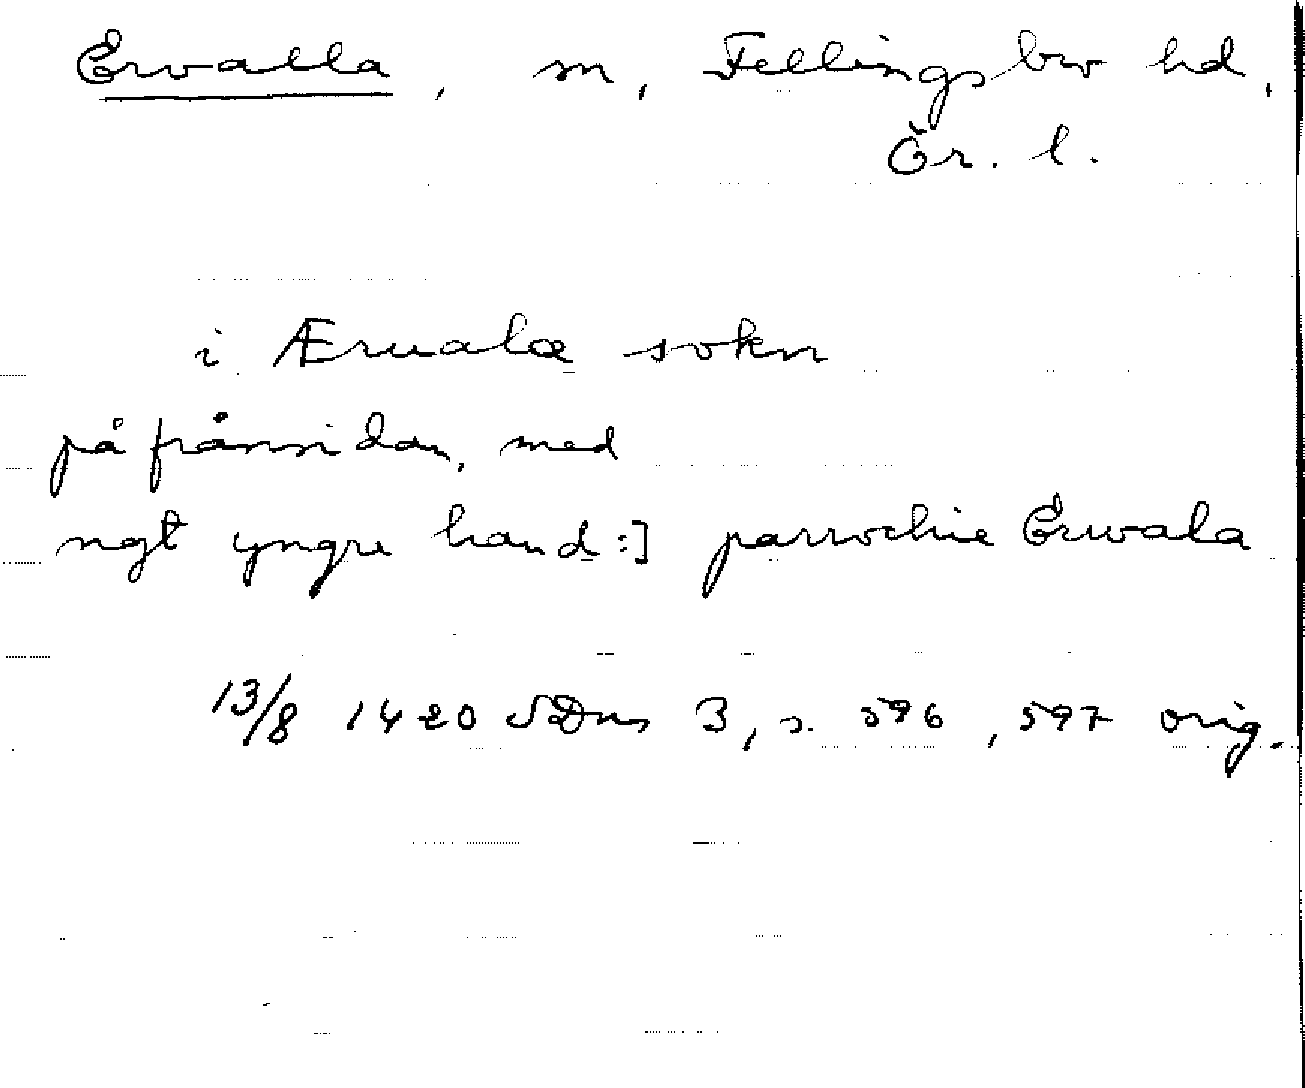 Ervalla, sn, Fellingsbro hd,
Ör. l.
i Æruala sokn
på frånsidan, med
ngt yngre hand:] parrochie Erwala
13/8 1420 SDns 3, s. 596, 597 orig.